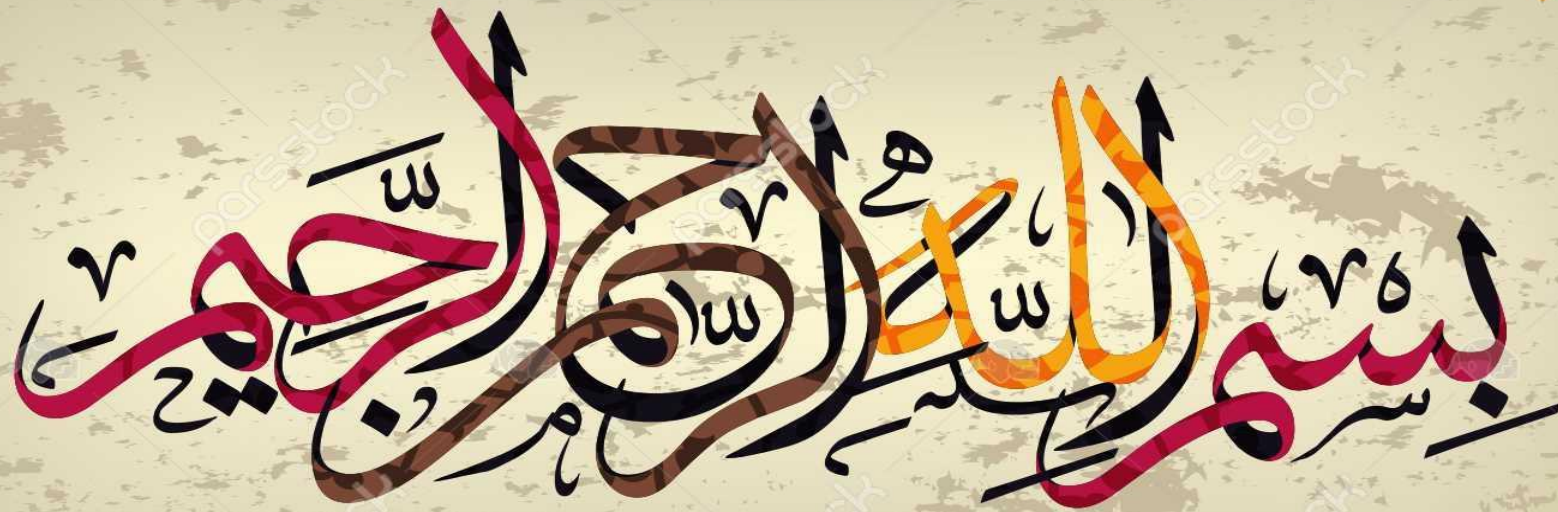 بِسْمِ اللَّهِ الرَّحْمٰنِ الرَّحِيمِ
parsstock